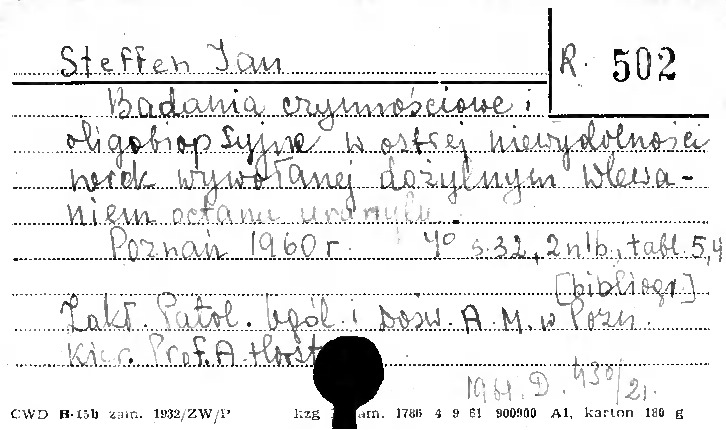 Steffen Jan
R. 502
Badania czynnościowe i
oligobiopsyjne w ostrej niewydolności
nerek wywołanej dożylnym wlewa-
niem octanu uranylu.
Poznań 1960 r. 4° s. 32, 2 nlb., tabl. 5,4
[bibliogr.]
Zakł. Patol. Ogól. i Dośw. A.M. w Pozn.
Kier. Prof. A Horst
1961. D. 430/21.
CWD B-15b zam. 1932/ZW/P kzg zam. 1786 4 9 61 900900 A1, karton 180 g